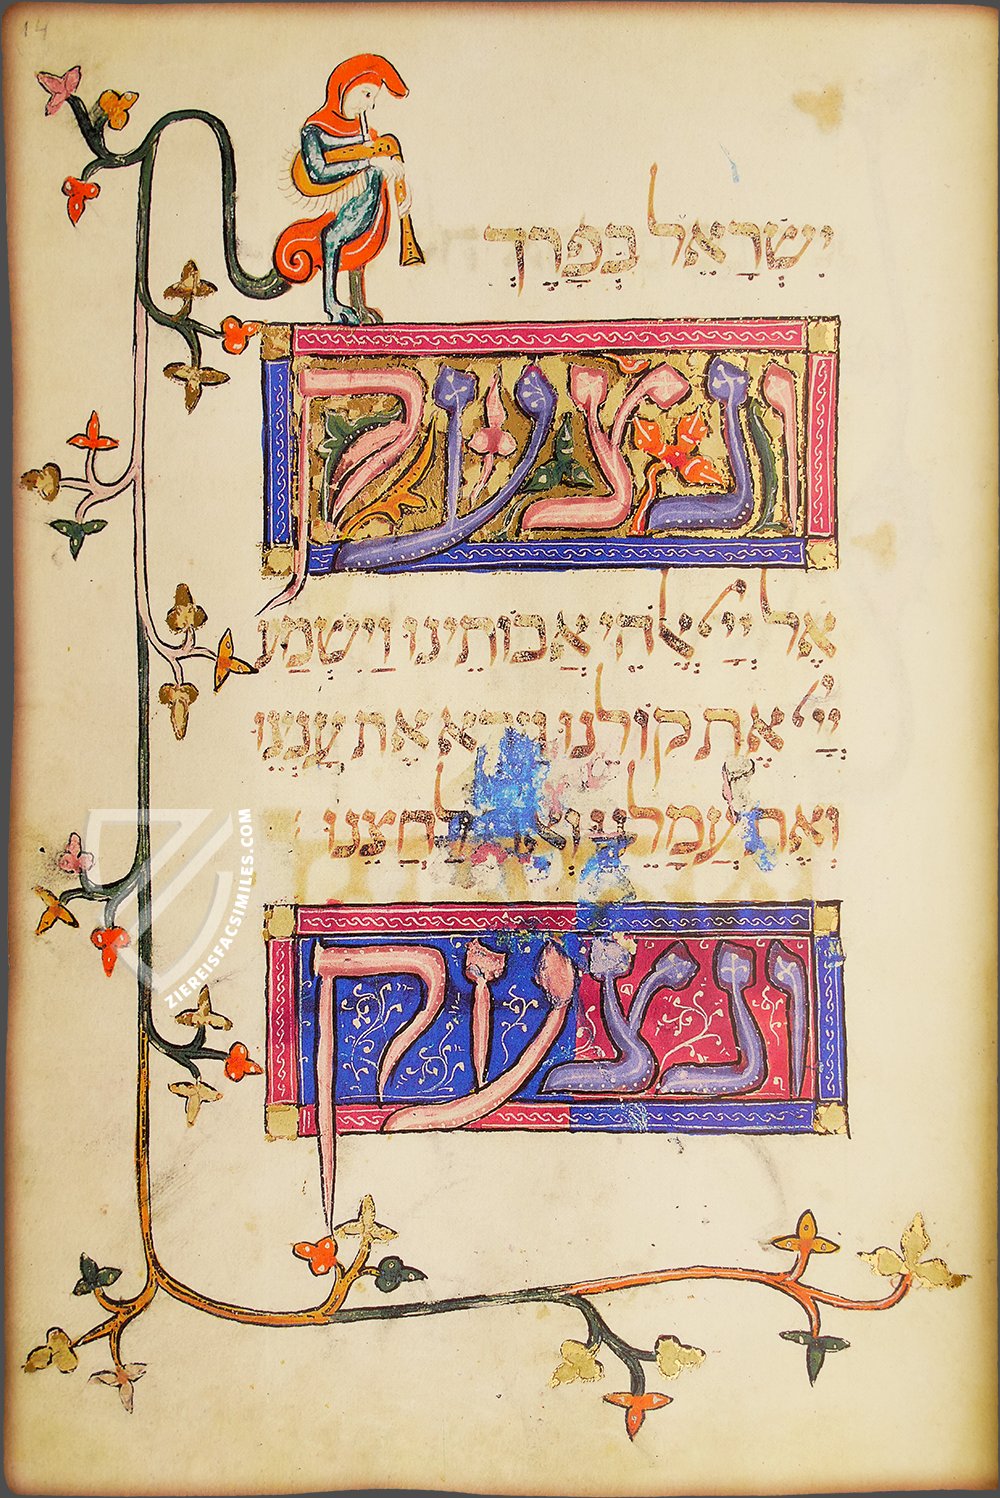 14
יִשְׂרָאֵל בְּפָרֶךְ
ונצעק
אֶל יְיָ אֱלֹהֵי אֲבוֹתֵינוּ וַיִּשְׁמַע
יְיָ אֶת קוֹלֵנוּ וַיַּרְא אֶת עָנְיֵנוּ
וְאֶת עֲמָלֵנוּ וְאֶת לַחֲצֵנוּ
ונצעק
ZIEREISFACSIMILES.COM